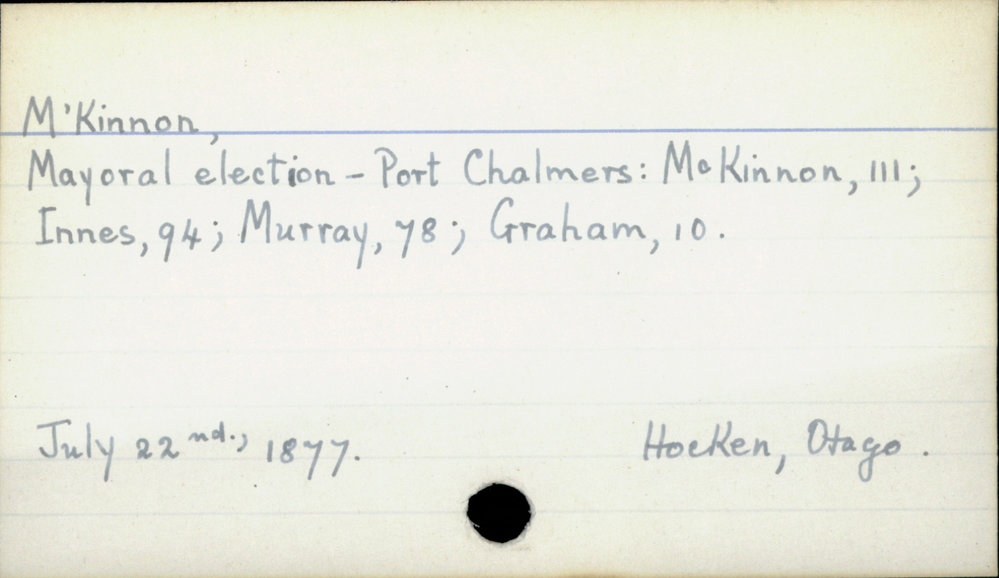 M'Kinnon,
Mayoral election - Port Chalmers: McKinnon, 111;
Innes, 94; Murray, 78; Graham, 10.
July 22nd., 1877. Hocken, Otago.